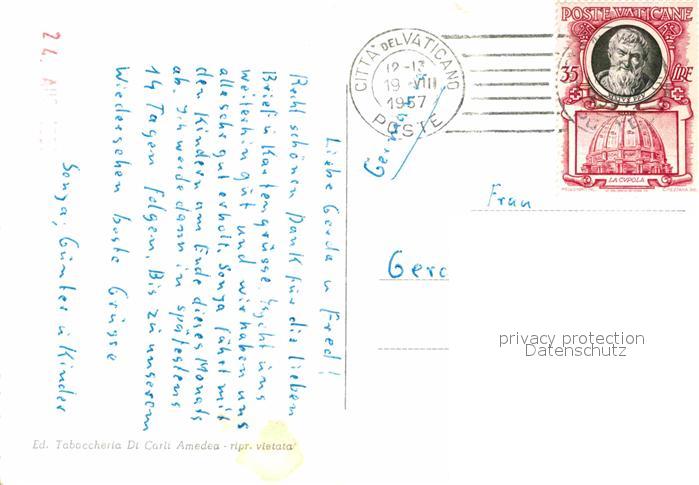 Liebe Gerda u Fred!
Recht schönen Dank für die lieben
Brief u Kartengrüsse. Es geht uns
weiterhin gut und wir haben uns
alle sehr gut erholt. Sonza fährt mit
den Kindern am Ende dieses Monats
ab. Ich werde dann in spätestens
14 Tagen folgen. Bis zu unserem
Wiedersehen beste Grüsse
Sonza, Günter u Kinder
24. AUG
CITTÀ DEL VATICANO
12-13
19 VIII
1957
POSTE
POSTE VATICANE
35 LIRE
LA CVPOLA
Frau
Gerd
privacy protection
Datenschutz
Ed. Tabaccheria Di Carli Amedea - ripr. vietata